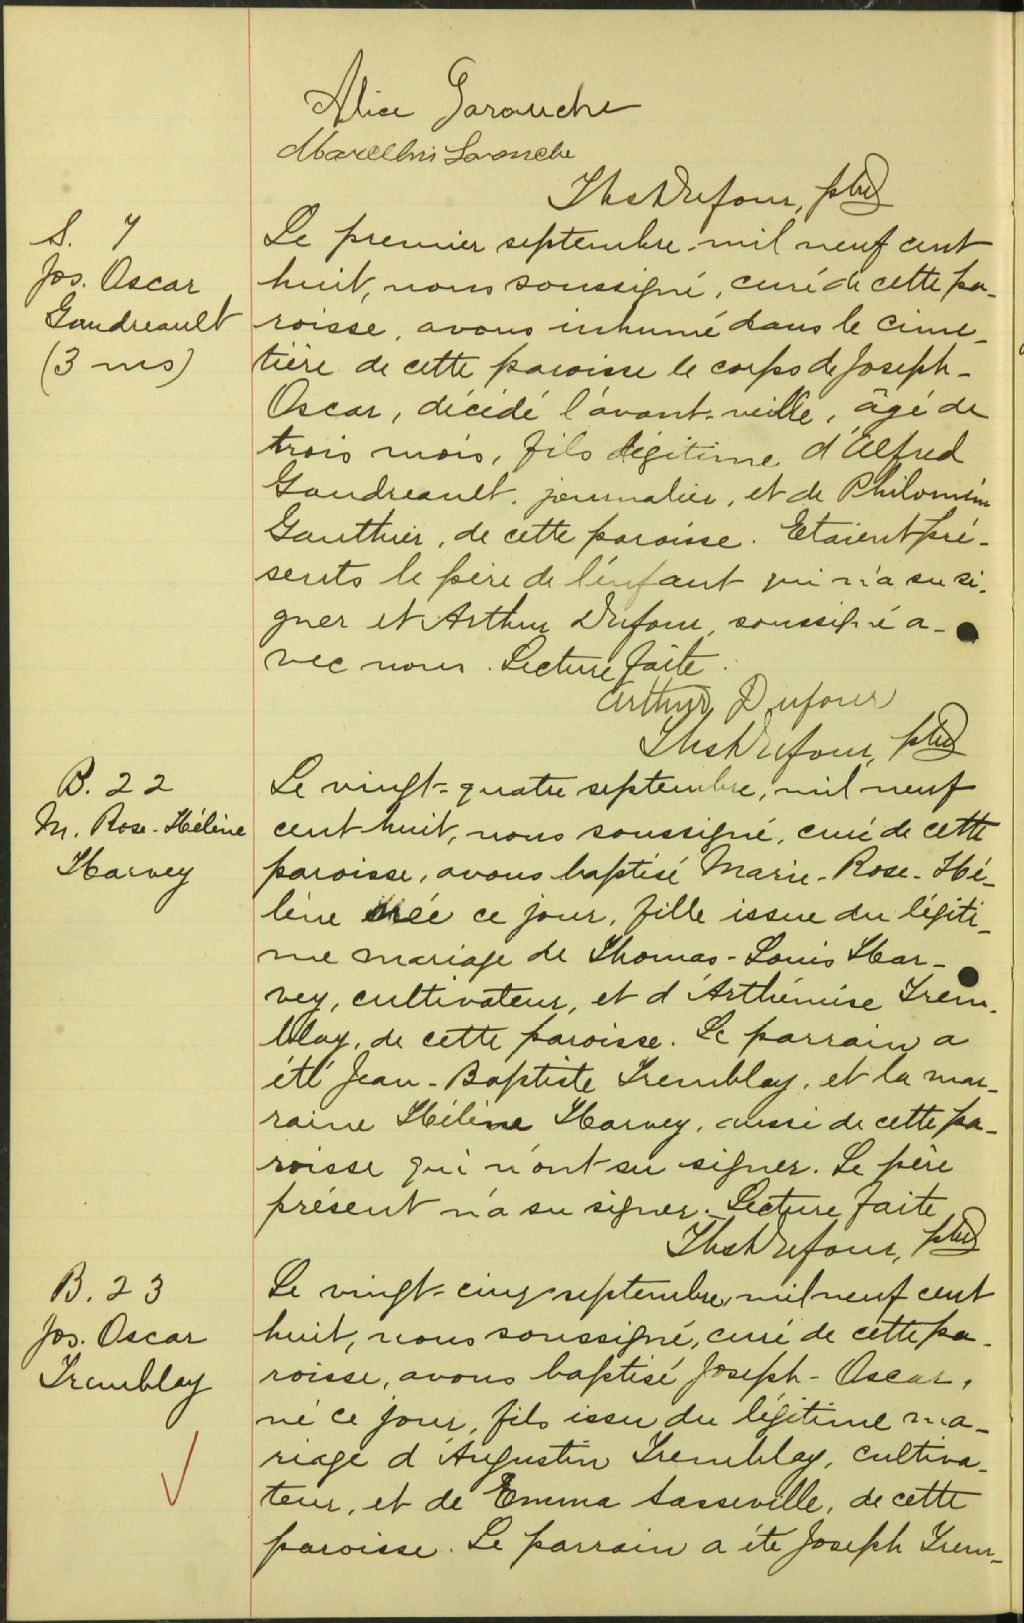 Alice Larouche
Marcellin Larouche
Ths Dufour, ptre
S. 7
Jos. Oscar
Gaudreault
(3 ms)
Le premier septembre mil neuf cent
huit, nous soussigné, curé de cette pa-
roisse, avons inhumé dans le cime-
tière de cette paroisse le corps de Joseph-
Oscar, décédé l'avant-veille, âgé de
trois mois, fils légitime d'Alfred
Gaudreault, journalier, et de Philomène
Gauthier, de cette paroisse. Etaient pré-
sents le père de l'enfant qui n'a su si-
gner et Arthur Dufour, soussigné a-
vec nous. Lecture faite.
Arthur Dufour
Ths Dufour, ptre
B. 22
M. Rose-Hélène
Harvey
Le vingt-quatre septembre, mil neuf
cent huit, nous soussigné, curé de cette
paroisse, avons baptisé Marie-Rose-Hé-
lène née ce jour, fille issue du légiti-
me mariage de Thomas-Louis Har-
vey, cultivateur, et d'Arthémise Trem-
blay, de cette paroisse. Le parrain a
été Jean-Baptiste Tremblay, et la mar-
raine Hélène Harvey, aussi de cette pa-
roisse qui n'ont su signer. Le père
présent n'a su signer. Lecture faite
Ths Dufour, ptre
B. 23
Jos. Oscar
Tremblay
Le vingt-cinq septembre, mil neuf cent
huit, nous soussigné, curé de cette pa-
roisse, avons baptisé Joseph-Oscar,
né ce jour, fils issu du légitime ma-
riage d'Augustin Tremblay, cultiva-
teur, et de Emma Sasseville, de cette
paroisse. Le parrain a été Joseph Trem-